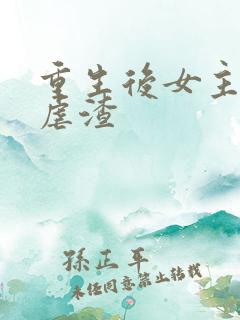 重生後女主
虐渣
孫正平
未經同意禁止轉載